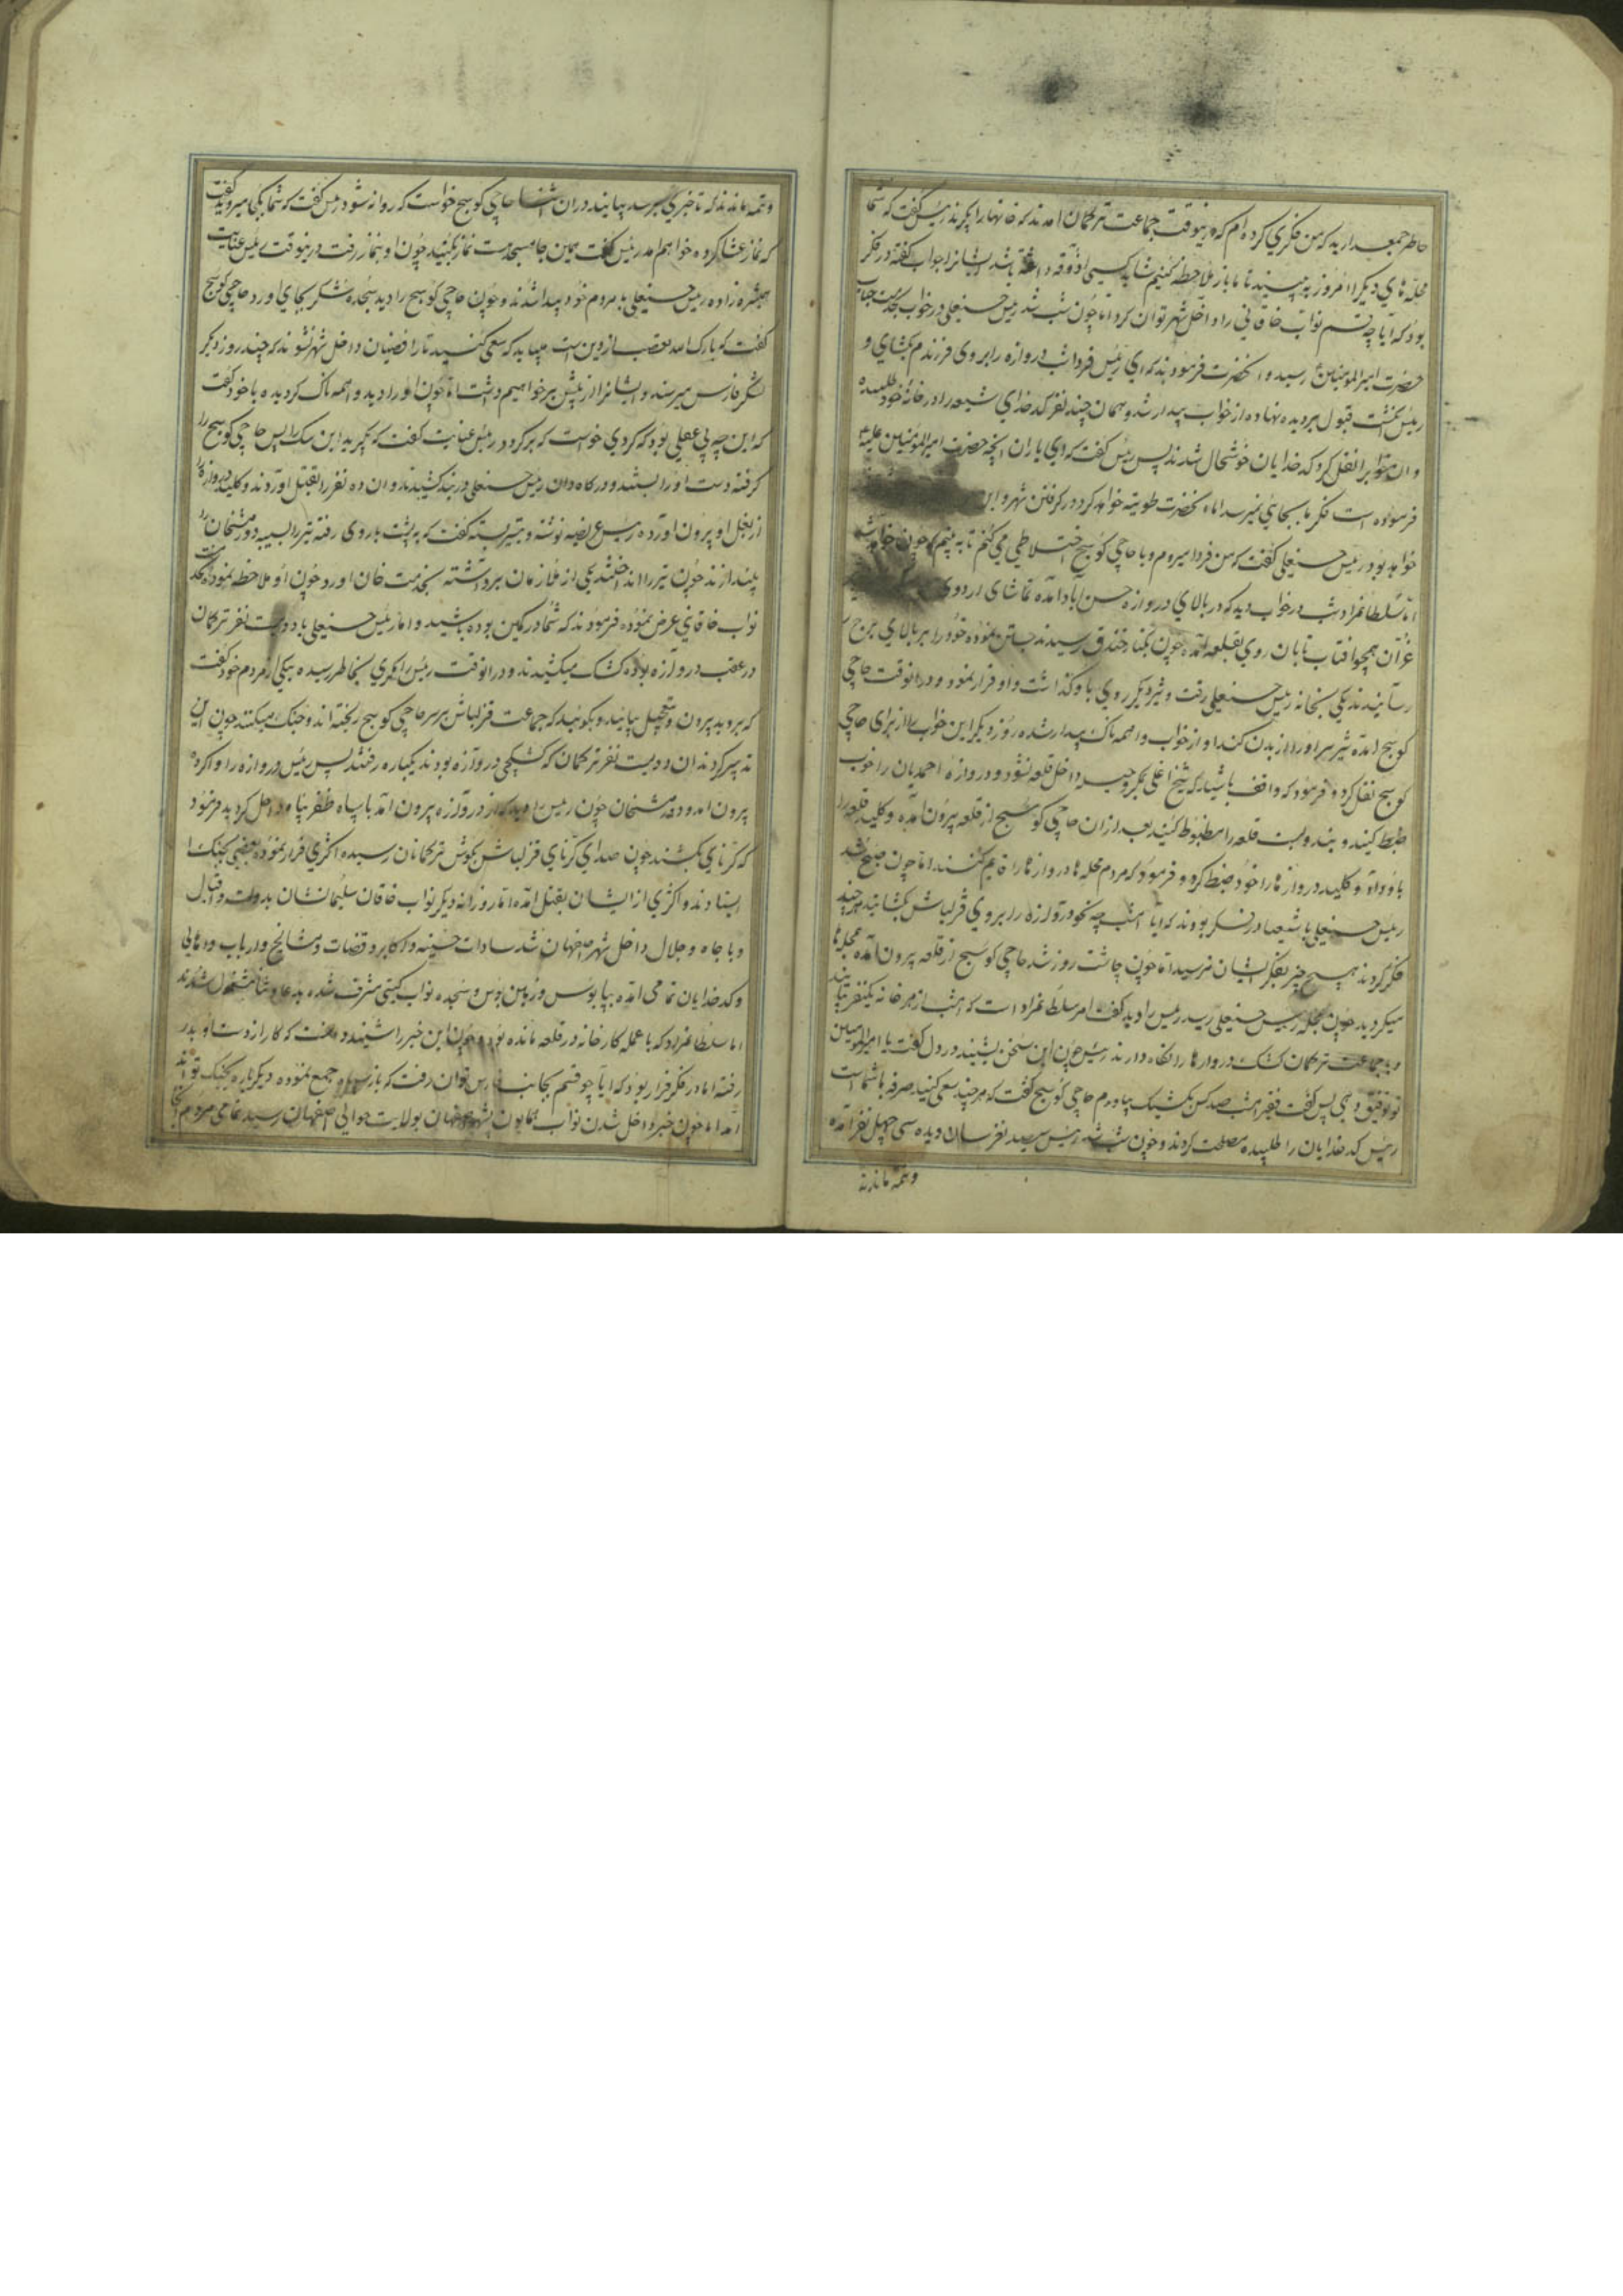 خاطر جمع دارید که من فکری کرده‌ام که درینوقت جماعت ترکمان آمدند که خانها را بگیرند رئیس گفت که شما
محله‌های دیگر را امروز به بینید تا ما باز ملاحظه کنیم شاید کسی آذوقه داشته باشد ایشانرا جواب گفته در فکر
بود که آیا چه قسم نواب خاقانی را داخل شهر توان کرد اما چون شب شد رئیس حسنعلی در خواب بخدمت جناب
حضرت امیرالمؤمنین رسید و آنحضرت فرمودند که ای رئیس فردا شب دروازه را بروی فرزندم بگشای و
رئیس انگشت قبول بر دیده نهاده از خواب بیدار شد و همان چند نفر کدخدای شیعه را در خانه خود طلبیده
و آن خواب را نقل کرد کدخدایان خوشحال شدند پس رئیس گفت که ای یاران آنچه حضرت امیرالمؤمنین علیه
فرموده است فکر ما بجایی نمیرسد اما آنحضرت خواهد کرد در گرفتن شهر و این
خواهد بود رئیس حسنعلی گفت که من فردا میروم و با حاجی کوسج اختلاطی می کنم تا به بینم که چون خواهد شد
اما سلطانمراد شب در خواب دید که در بالای دروازه حسن آباد آمده تماشای اردوی
غران همچو آفتاب تابان روی بقلعه آمده چون بکنار خندق رسیدند جستن نموده خود را بر بالای برج
رسانیدند یکی بخانه رئیس حسنعلی رفت و شیر دیگر روی باو گذاشت و او فرار نمود و در آنوقت حاجی
کوسج آمده شیر سر او را از بدن کند او از خواب واهمه ناک بیدار شده روز دیگر این خواب را از برای حاجی
کوسج نقل کرد و فرمود که واقف باشید که شیخ اغلی بمکر و حیله داخل قلعه نشود و دروازه احمدیان را خوب
ضبط کنید و بند و بست قلعه را مضبوط کنید بعد از آن حاجی کوسج از قلعه بیرون آمده و کلید قلعه را
باو داد و کلید دروازها را خود ضبط کرد و فرمود که مردم محله ها دروازها را قایم کنند اما چون صبح شد
رئیس حسنعلی با شیعها در فکر بودند که آیا امشب چه نحو دروازه را بروی قزلباش بگشایند هر چند
فکر کردند هیچ چیز بفکر ایشان نرسید اما چون چاشت روز شد حاجی کوسج از قلعه بیرون آمده بمحله ها
میگردید چون بمحله رئیس حسنعلی رسید رئیس را دید گفت امر سلطانمراد است که امشب از هر خانه یکنفر بیایند
و با جماعت ترکمان کشک دروازها را نگاه دارند رئیس چون این سخن بشنید در دل گفت یا امیرالمؤمنین
تو توفیق دهی پس گفت فقیر امشب صد کس بکشیک بیاورم حاجی کوسج گفت که هر چند سعی کنید صرفه با شما است
رئیس کدخدایان را طلبیده مصلحت کردند و چون شب شد رئیس سیصد نفر سان دیده سی چهل نفر آمده
و تتمه ماندند
و تتمه ماندند که تا خبری برسد بیایند در آن اثنا حاجی کوسج خواست که روانه شود رئیس گفت که شما بکجا میروید گفت
که نماز عشا کرده خواهم آمد رئیس گفت همین جا مسجد است نماز بکنید چون او بنماز رفت درینوقت رئیس عنایت
همشیره زاده رئیس حسنعلی با مردم خود پیدا شدند و چون حاجی کوسج را دید سجده شکر بجای آورد حاجی کوسج
گفت که بارک الله تعصب از دین است میباید که سعی کنید تا رافضیان داخل شهر نشوند که چند روز دیگر
لشکر فارس میرسند و ایشانرا از پیش بر خواهیم داشت اما چون او را دید واهمه ناک گردیده با خود گفت
که این چه بی عقلی بود که کردی خواست که بر گردد رئیس عنایت گفت که بگیرید این سک را پس حاجی کوسج را
گرفته دست او را بستند و در کاه دان رئیس حسنعلی در بند کشیدند و آن ده نفر را بقتل آوردند و کلید دروازه را
از بغل او بیرون آورده رئیس عریضه نوشته و بتیر بسته گفت که به پشت باروی رفته تیر را بسیبه دورمشخان
بیندازند چون تیر را انداختند یکی از ملازمان برداشته بخدمت خان آورد چون او ملاحظه نموده بخدمت
نواب خاقانی عرض نموده فرمودند که شما در کمین بوده باشید و اما رئیس حسنعلی با دویست نفر ترکمان
در عقب دروازه بوده کشک میکشیدند و در آنوقت رئیس را فکری بخاطر رسیده بیکی از مردم خود گفت
که بروید بیرون و بتعجیل بیائید و بگوئید که جماعت قزلباش بر سر حاجی کوسج ریخته اند و جنگ میکنند چون این
تدبیر کردند آن دویست نفر ترکمان که کشیکچی دروازه بودند یکباره رفتند پس رئیس دروازه را وا کرده
بیرون آمد دورمشخان چون رئیس را دید که از دروازه بیرون آمد با سپاه ظفر پناه داخل گردید فرمود
که کرنای بکشند چون صدای کرنای قزلباش بگوش ترکمانان رسیده اکثری فرار نموده بعضی بجنگ
ایستادند و اکثری از ایشان بقتل آمده اما روزانه دیگر نواب خاقان سلیمانشان بدولت و اقبال
و با جاه و جلال داخل شهر اصفهان شد سادات حسینه و اکابر و قضات و مشایخ و ارباب و اهالی
و کدخدایان تمامی آمده بپابوس و زمین بوس و سجده نواب گیتی مشرف شده بدعا و ثنا مشغول شدند
اما سلطانمراد که با عمله کارخانه در قلعه مانده بود چون این خبر را شنید دانست که کار از دست او بدر
رفته اما در فکر فرار بود که آیا چه قسم بجانب فارس توان رفت که باز سپاه جمع نموده دیگر باره بجنگ تواند
آمد اما چون خبر داخل شدن نواب همایون بشهر اصفهان بولایت حوالی اصفهان رسید تمامی مردم آنجا